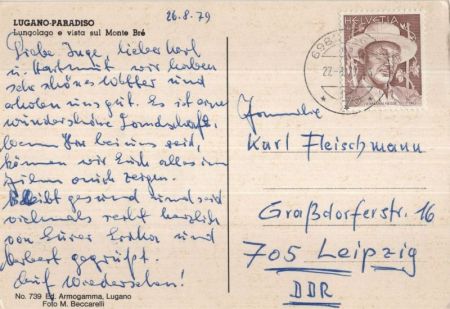 LUGANO-PARADISO
Lungolago e vista sul Monte Bré
26.8.79
Liebe Inge, lieber Karl
u. Hartmut wir haben
sehr schönes Wetter und
erholen uns gut. Es ist eine
wunderschöne Landschaft,
wenn Ihr bei uns seid,
können wir Euch alles im
Film auch zeigen.
Bleibt gesund und seid
vielmals recht herzlich
von Eurer Erika und
Herbert gegrüßt.
Auf Wiedersehen!
No. 739 Ed. Armogamma, Lugano
Foto M. Beccarelli
HELVETIA
Familie
Karl Fleischmann
Graßdorferstr. 16
705 Leipzig
DDR